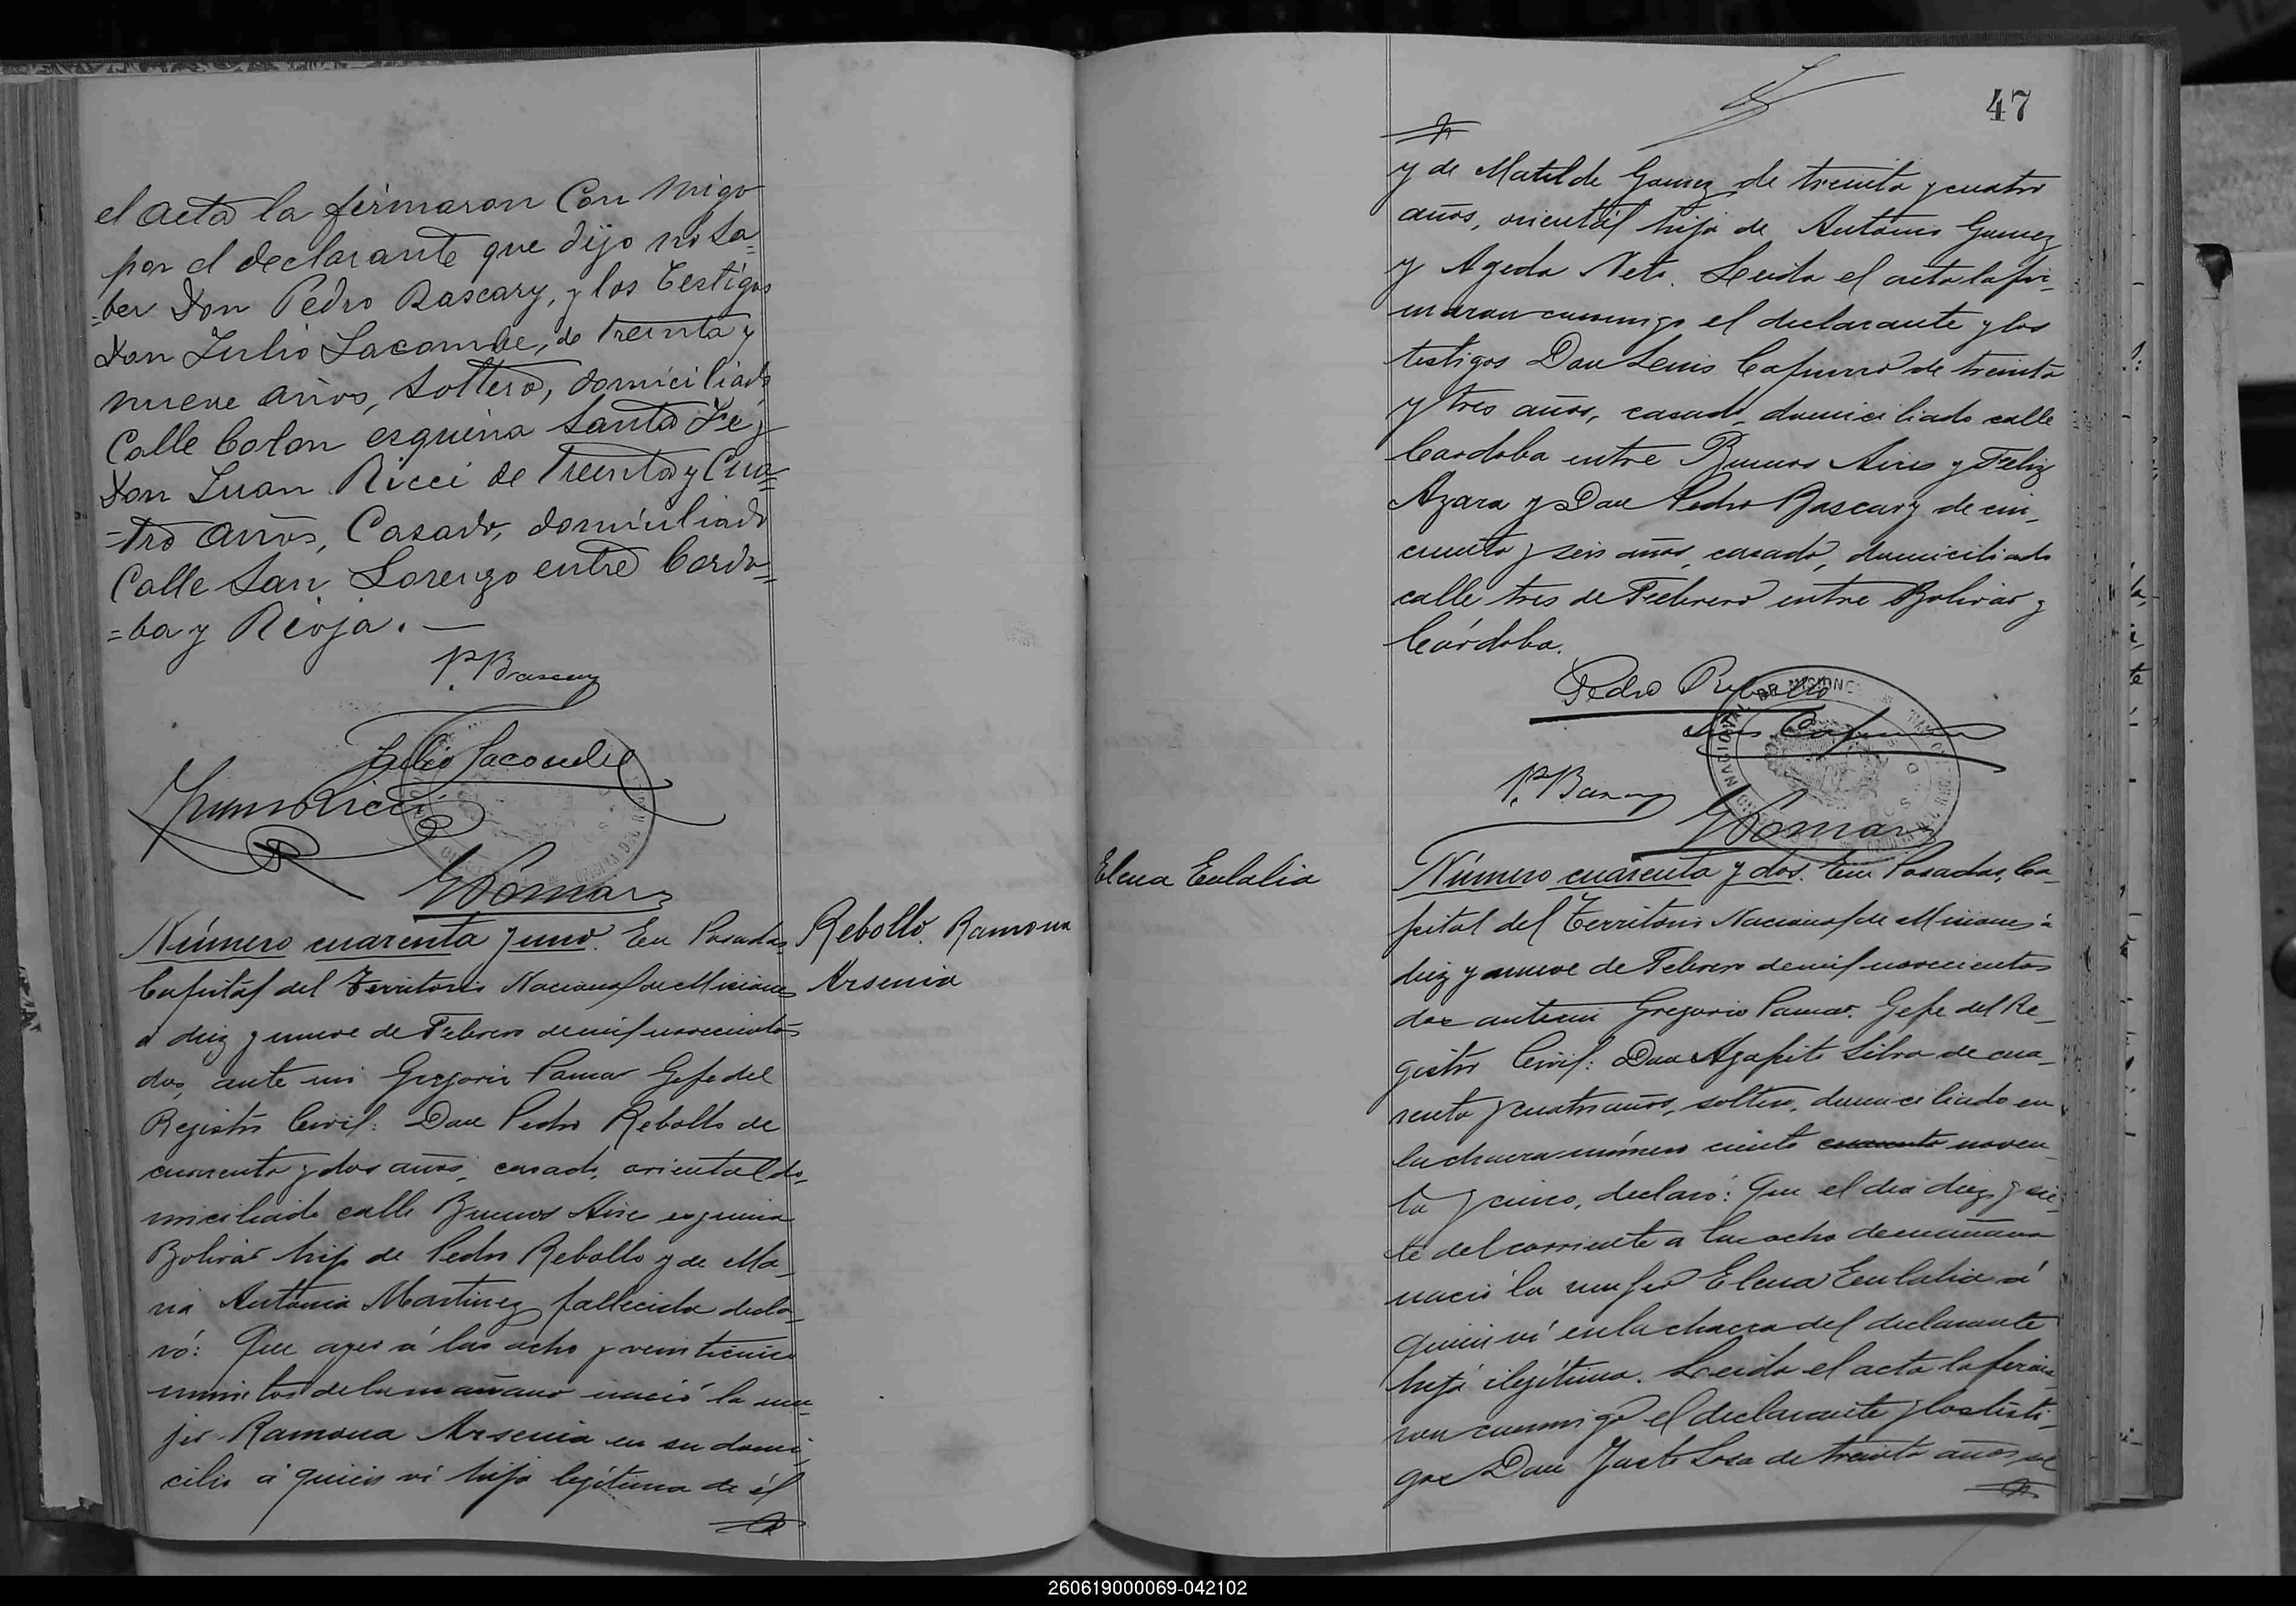 el acta la firmaron Con migo
por el declarante que dijo no sa-
=ber Don Pedro Bascary, y los testigos
Don Julio Lacombe, de treinta y
nueve años, Soltero, domiciliado
Calle Colon esquina Santa Fé, y
Don Juan Ricci de Treinta y Cua=
=tro años, Casado, domiciliado
Calle San Lorenzo entre Cordo=
=ba y Rioja. —
P. Bascary
Julio Lacombe
Juan Ricci
G Pomar
Rebollo. Ramona
Arsenia
Número cuarenta y uno. En Posadas
Capital del Territorio Nacional de Misiones
a diez y nueve de Febrero de mil novecientos
dos, ante mi Gregorio Pomar Gefe del
Registro Civil: Don Pedro Rebollo de
cuarenta y dos años, casado, oriental do-
miciliado calle Buenos Aires esquina
Bolivar hijo de Pedro Rebollo y de Ma-
ria Antonia Martinez fallecida decla-
ró: Que ayer á las ocho y veinticinco
minutos de la mañana nació la mu-
jer Ramona Arsenia en su domi-
cilio á quien ví hija legítima de él
47
y de Matilde Gomez de treinta y cuatro
años, oriental hija de Antonio Gomez
y Ageda Neto. Leida el acta la fir-
maron conmigo el declarante y los
testigos Don Luis Capurro de treinta
y tres años, casado, domiciliado calle
Cordoba entre Buenos Aires y Feliz
Azara y Don Pedro Bascary de cin-
cuenta y seis años, casado, domiciliado
calle tres de Febrero entre Bolivar y
Córdoba.
Pedro Rebollo
Luis Capurro
P. Bascary
G Pomar
Elena Eulalia
Número cuarenta y dos. En Posadas, Ca-
pital del Territorio Nacional de Misiones á
diez y nueve de Febrero de mil novecientos
dos ante mi Gregorio Pomar Gefe del Re-
gistro Civil: Don Agapito Silva de cua-
renta y cuatro años, soltero, domiciliado en
la chacra número ciento cuarenta noven-
ta y cinco, declaró: Que el dia diez y sie-
te del corriente a las ocho de la mañana
nació la mujer Elena Eulalia á
quien ví en la chacra del declarante
hija ilegítima. Leida el acta la firma-
ron conmigo el declarante y los testi-
gos Don Justo Sosa de treinta años, sol
260619000069-042102